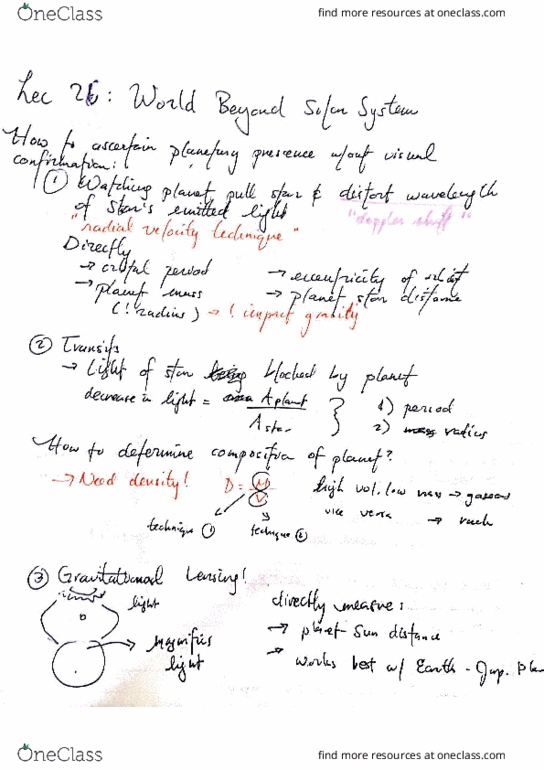 OneClass
find more resources at oneclass.com
Lec 26: World Beyond Solar System
How to ascertain planetary presence w/out visual
confirmation:
① Watching planet pull star & distort wavelength
of star's emitted light
"doppler shift"
"radial velocity technique"
Directly
→ orbital period → eccentricity of orbit
→ planet mass → planet star distance
(! radius) → ! impact gravity
② Transits
→ Light of star blocked by planet
decrease in light = A planet / A star } 1) period
2) radius
How to determine composition of planet?
→ Need density! D = M / V high vol. low mass → gaseous
vice versa →
technique ① technique ②
③ Gravitational Lensing!
light directly measure:
→ planet-Sun distance
magnifies
light → works best w/ Earth - Jup. Pla
OneClass
find more resources at oneclass.com